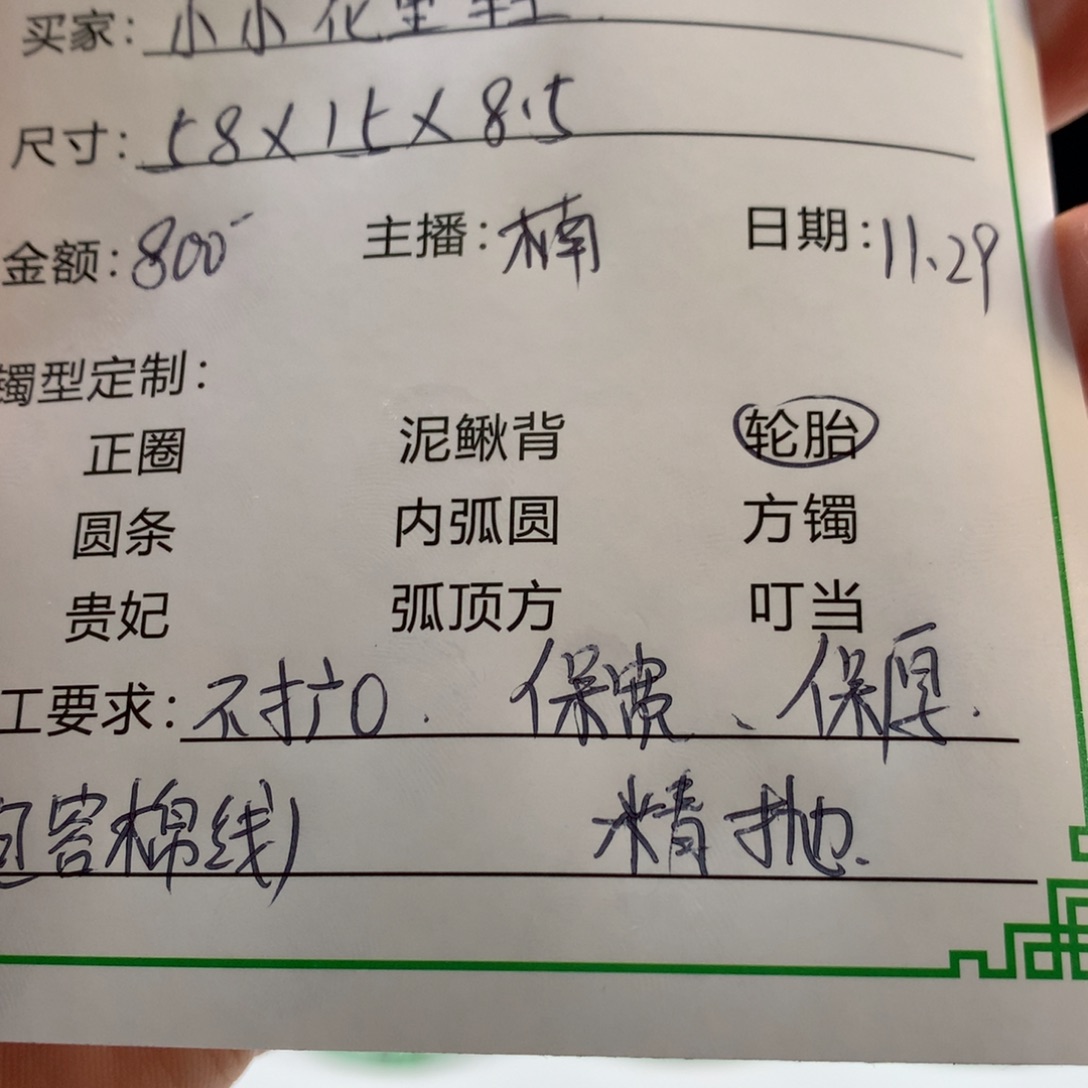 买家: 小小花
尺寸: 58×15×8.5
金额: 800 主播: 楠 日期: 11.29
镯型定制:
正圈 泥鳅背 轮胎
圆条 内弧圆 方镯
贵妃 弧顶方 叮当
工要求: 不扩口. 保宽、保厚.
棉线) 精抛.